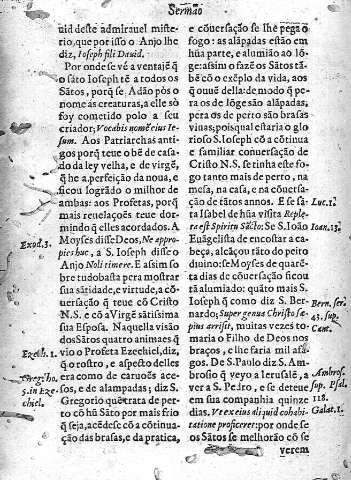 Sermão
uid deste admirauel miste-
rio, que por isso o Anjo lhe
diz, Ioseph fili Dauid.
Por onde se vé a ventajē q̄
o sāto Ioseph tē a todos os
Sātos, porq̄ se Adão pòs o
nome ás creaturas, a elle só
foy cometido polo a seu
criador; Vocabis nomē eius Ie-
sum. Aos Patriarchas anti-
gos porq̄ teue o bē de casa-
do da ley velha, e de virgē,
q̄ he a perfeição da noua, e
ficou logrādo o milhor de
ambas: aos Profetas, porq̄
mais reuelações teue dor-
mindo q̄ elles acordados. A
Exod. 3.
Moyses disse Deos, Ne appro-
pies huc, a S. Ioseph disse o
Anjo Noli timere. E assim so
bre tudo basta pera mostrar
sua sātidade, e virtude, a cō-
uersação q̄ teue cō Christo
N. S. e cō a Virgē sātissima
sua Esposa. Naquella visão
dos Sātos quatro animaes q̄
Ezech. 1.
vio o Profeta Ezechiel, diz,
q̄ o rostro, e aspecto delles
era como de caruões ace-
Gregi. ho.
sos, e de alampadas; diz S.
5. in Eze-
Gregorio que trata de per-
chiel.
to cō hū Sāto por mais frio
q̄ seja, acēdese cō a cōtinua-
ção das brasas, e da pratica,
e cōuersação se lhe pega o
fogo: as alāpadas estão em
hūa parte, e alumião ao lō-
ge: assim o fazē os Sātos tā-
bē cō o exēplo da vida, aos
q̄ ouuē della: de modo q̄ pe-
ra os de lōge são alāpadas,
pera os de perto são brasas
viuas; pois qual estaria o glo
rioso S. Ioseph cō a cōtinua
e familiar conuersação de
Cristo N. S. se tinha este fo-
go tanto mais de perto, na
mesa, na casa, e na cōuersa-
ção de tātos annos. E se sā-
ta Isabel de hūa visita Reple-
Luc. 1.
ta est Spiritu Sācto: Se S. Ioão
Ioan. 13.
Euāgelista de encostar a ca-
beça, alcāçou tāto do peito
duino: se Moyses de quarē-
ta dias de cōuersação ficou
tā alumiado: quāto mais S.
Ioseph q̄ como diz S. Ber-
Bern. ser.
nardo; Super genua Christo sæ-
43. sup.
pius arrisit, muitas vezes to-
Cant.
maria o Filho de Deos nos
braços, e lhe faria mil afa-
gos. De S. Paulo diz S. Am-
Ambros.
brosio q̄ veyo a Ierusalē, a
sup. Psal.
ver a S. Pedro, e se deteue
118.
em sua companhia quinze
Galat. 1.
dias. Vt ex eius aliquid cohabi-
tatione proficeret: por onde se
os Sātos se melhorão cō se
verem